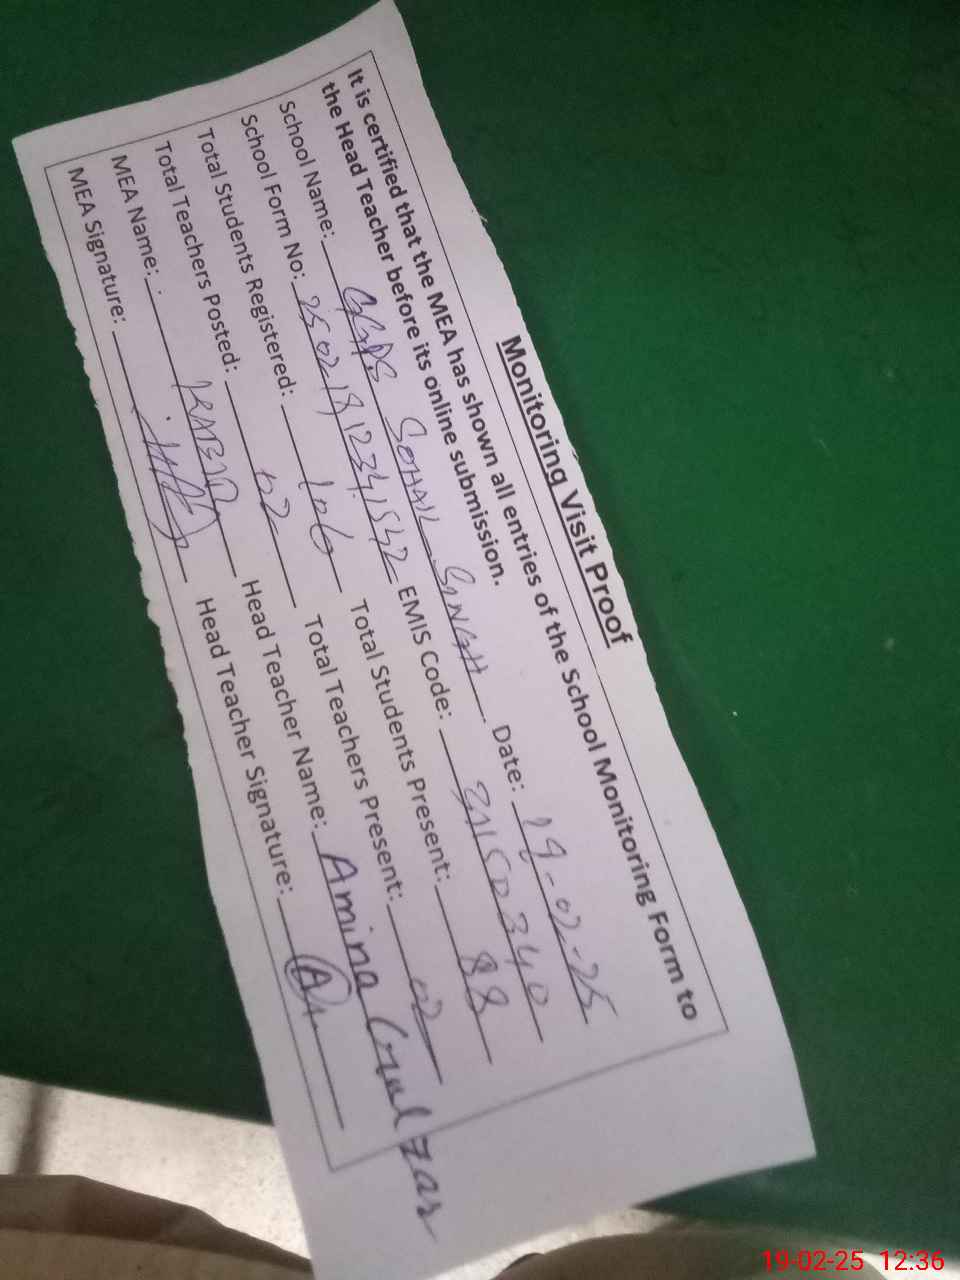 Monitoring Visit Proof
It is certified that the MEA has shown all entries of the School Monitoring Form to
the Head Teacher before its online submission.
School Name: GGPS SOHAIL SINGH Date: 19-02-25
School Form No: EMIS Code:
Total Students Registered: 106 Total Students Present: 88
Total Teachers Posted: 02 Total Teachers Present: 02
MEA Name: Head Teacher Name: Amina Gulzar
MEA Signature: Head Teacher Signature:
19-02-25 12:36